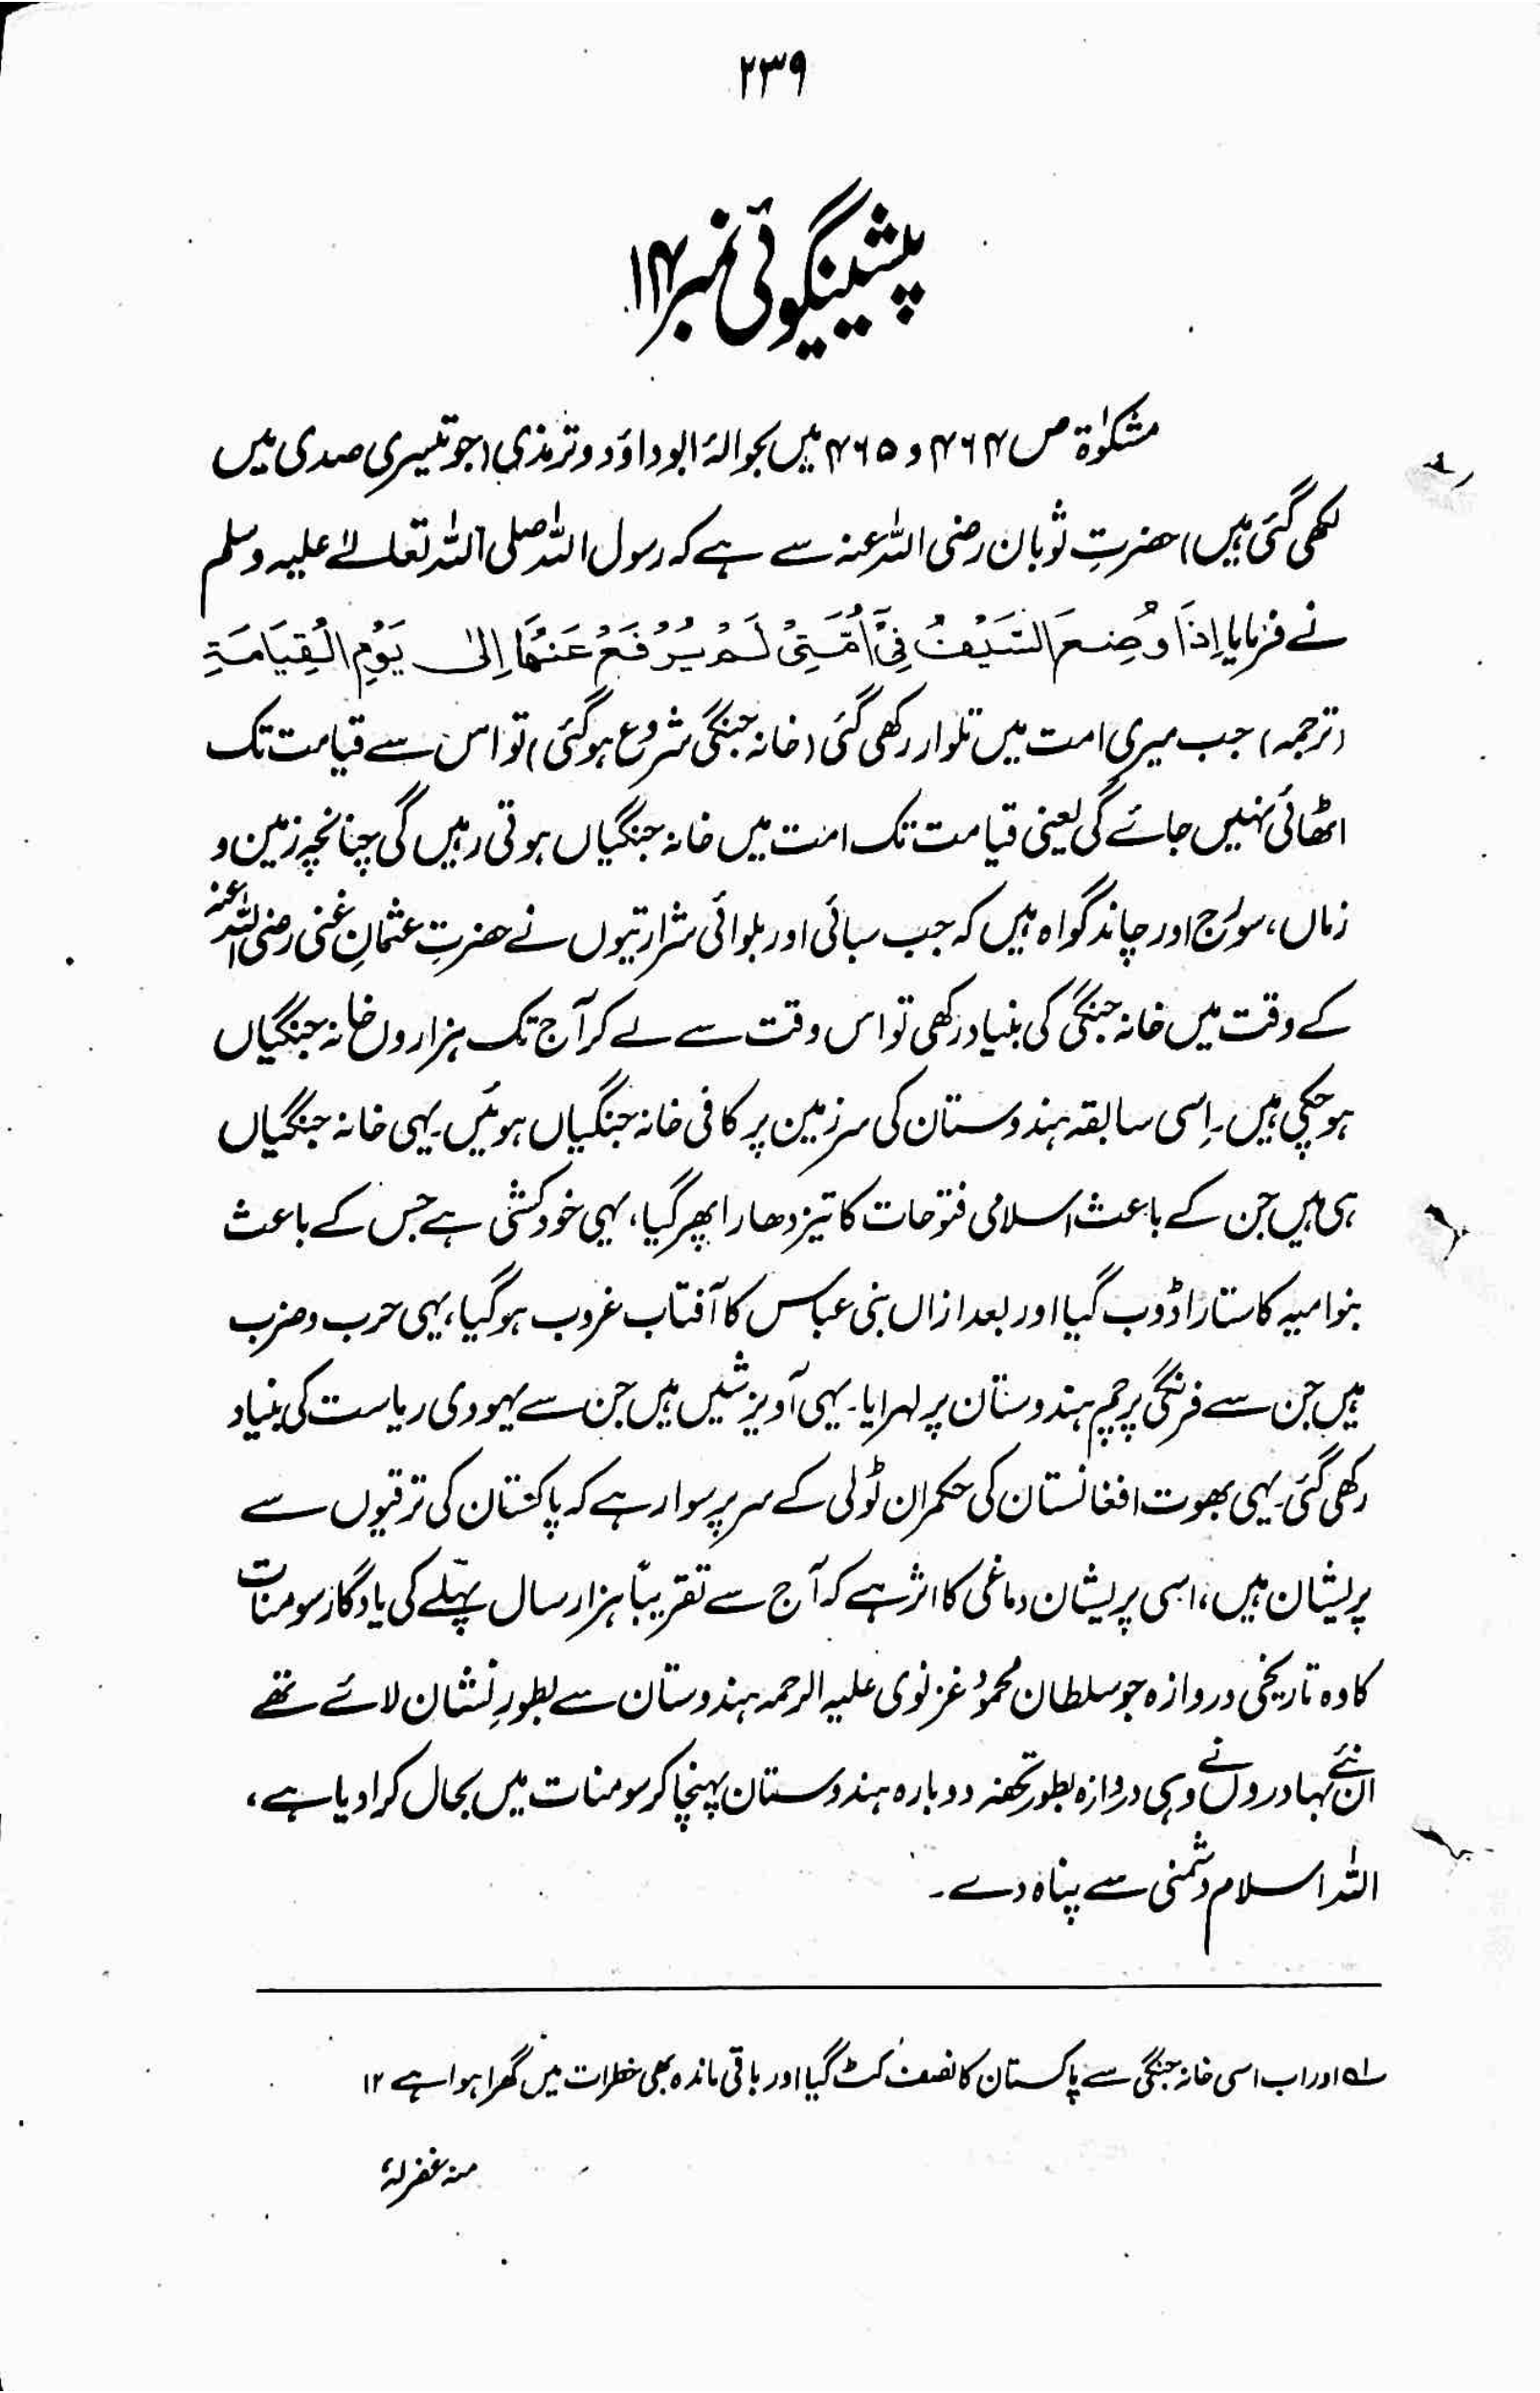 ۲۳۹
پیشینگوئی نمبر ۱۴
مشکوٰۃ ص ۴۶۴ و ۴۶۵ میں بحوالۂ ابو داؤد و ترمذی (جو تیسری صدی میں
لکھی گئی ہیں) حضرتِ ثوبان رضی اللہ عنہ سے ہے کہ رسول اللہ صلی اللہ تعالےٰ علیہ وسلم
نے فرمایا اِذَا وُضِعَ السَّیْفُ فِیْٓ اُمَّتِیْ لَمْ یُرْفَعْ عَنْهَا اِلیٰ یَوْمِ الْقِیَامَةِ
(ترجمہ) جب میری امت میں تلوار رکھی گئی (خانہ جنگی شروع ہوگئی) تو اس سے قیامت تک
اٹھائی نہیں جائے گی یعنی قیامت تک امت میں خانہ جنگیاں ہوتی رہیں گی چنانچہ زمین و
زماں، سورج اور چاند گواہ ہیں کہ جب سبائی اور بلوائی شرارتیوں نے حضرتِ عثمانِ غنی رضی اللہ عنہ
کے وقت میں خانہ جنگی کی بنیاد رکھی تو اس وقت سے لے کر آج تک ہزاروں خانہ جنگیاں
ہو چکی ہیں۔ اِسی سابقہ ہندوستان کی سرزمین پر کافی خانہ جنگیاں ہوئیں۔ یہی خانہ جنگیاں
ہی ہیں جن کے باعث اسلامی فتوحات کا تیز دھارا پھر گیا، یہی خودکشی ہے جس کے باعث
بنو امیہ کا ستارا ڈوب گیا اور بعد ازاں بنی عباس کا آفتاب غروب ہوگیا، یہی حرب و ضرب
ہیں جن سے فرنگی پرچم ہندوستان پر لہرایا۔ یہی آویزشیں ہیں جن سے یہودی ریاست کی بنیاد
رکھی گئی۔ یہی بھوت افغانستان کی حکمران ٹولی کے سر پر سوار ہے کہ پاکستان کی ترقیوں سے
پریشان ہیں، اسی پریشان دماغی کا اثر ہے کہ آج سے تقریباً ہزار سال پہلے کی یادگار سومنات
کا وہ تاریخی دروازہ جو سلطان محمود غزنوی علیہ الرحمہ ہندوستان سے بطورِ نشان لائے تھے
ان نئے بہادروں نے وہی دروازہ بطور تحفہ دوبارہ ہندوستان پہنچا کر سومنات میں بحال کرا دیا ہے،
اللہ اسلام دشمنی سے پناہ دے۔
لہ اور اب اسی خانہ جنگی سے پاکستان کا نصف کٹ گیا اور باقی ماندہ بھی خطرات میں گھرا ہوا ہے ۱۲
منہ غفرلہٗ